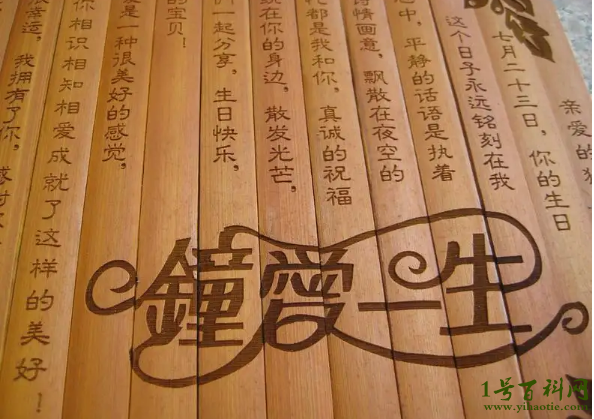 亲爱的
七月二十三日，你的生日
这个日子永远铭刻在我
中，平静的话语是执着
诗情画意，飘散在夜空的
都是我和你，真诚的祝福
在你的身边，散发光芒，
一起分享，生日快乐，
的宝贝！
是一种很美好的感觉，
你相识相知相爱成就了这样的美好！
幸运，我拥有了你，
鐘愛一生
1号百科网
www.yihaotie.com